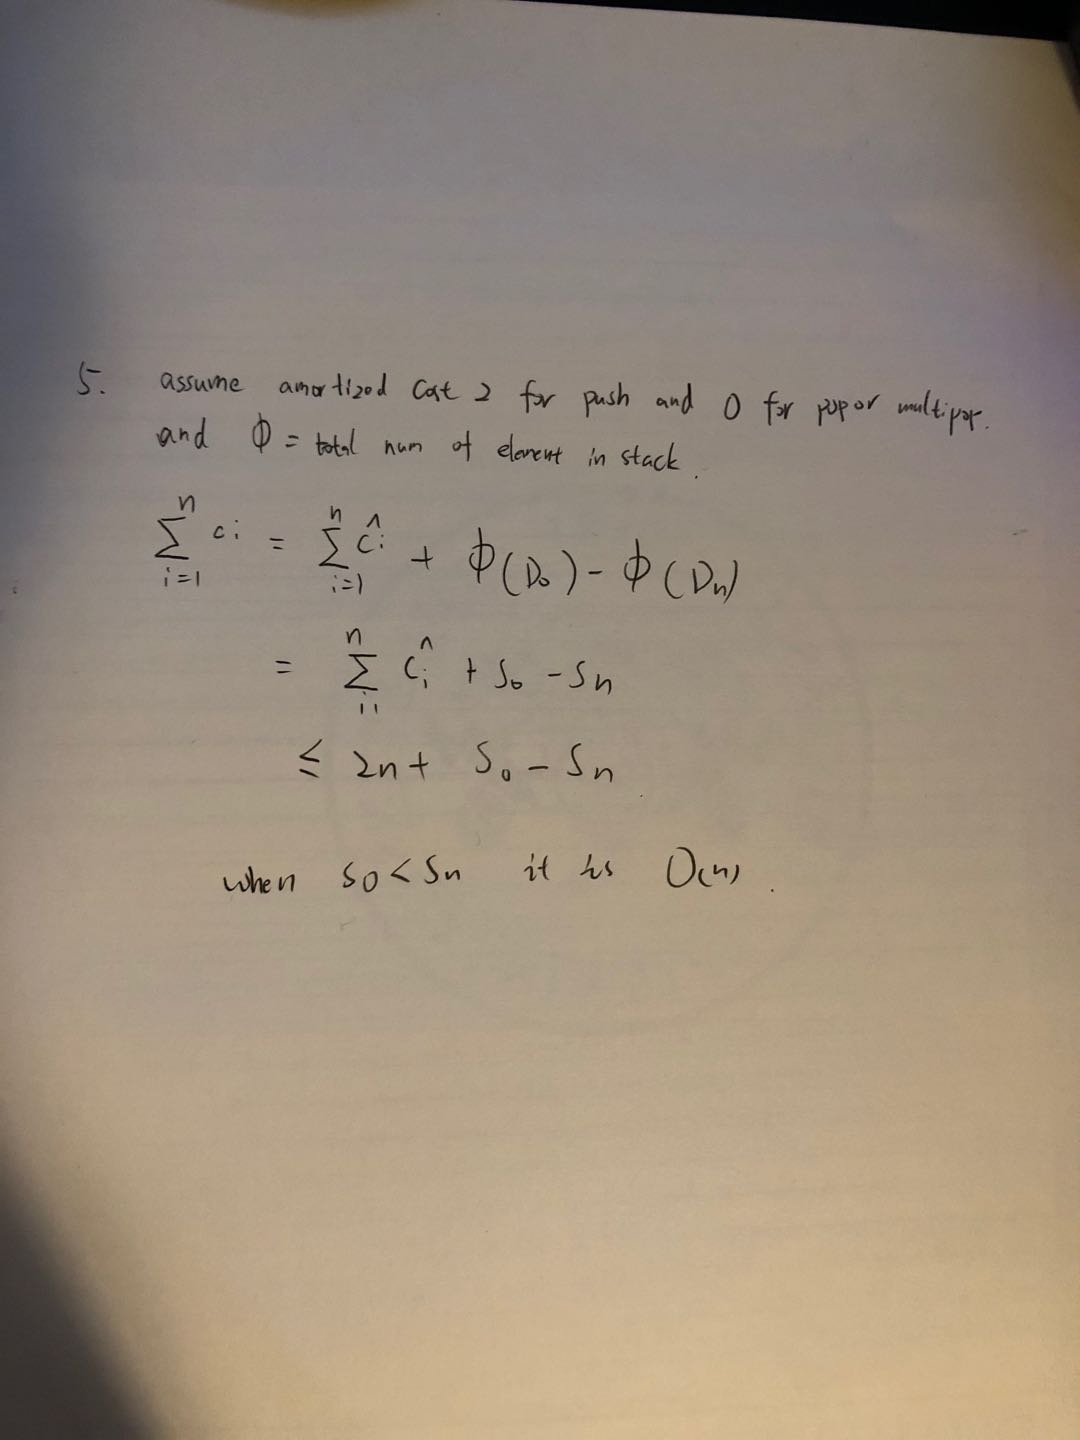 5. assume amortized cost 2 for push and 0 for pop or multipop.
and ϕ = total num of element in stack.
∑_{i=1}^{n} c_i = ∑_{i=1}^{n} ĉ_i + ϕ(D_0) - ϕ(D_n)
= ∑_{i=1}^{n} ĉ_i + S_0 - S_n
≤ 2n + S_0 - S_n
when S_0 < S_n it is O(n).